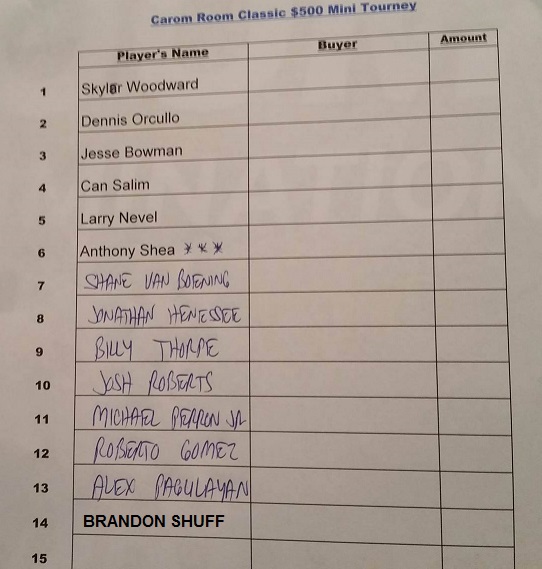 Carom Room Classic $500 Mini Tourney
Player's Name Buyer Amount
1 Skylar Woodward
2 Dennis Orcullo
3 Jesse Bowman
4 Can Salim
5 Larry Nevel
6 Anthony Shea ***
7 SHANE VAN BOENING
8 JONATHAN HENESSEE
9 BILLY THORPE
10 JOSH ROBERTS
11 MICHAEL PERRON JR
12 ROBERTO GOMEZ
13 ALEX PAGULAYAN
14 BRANDON SHUFF
15